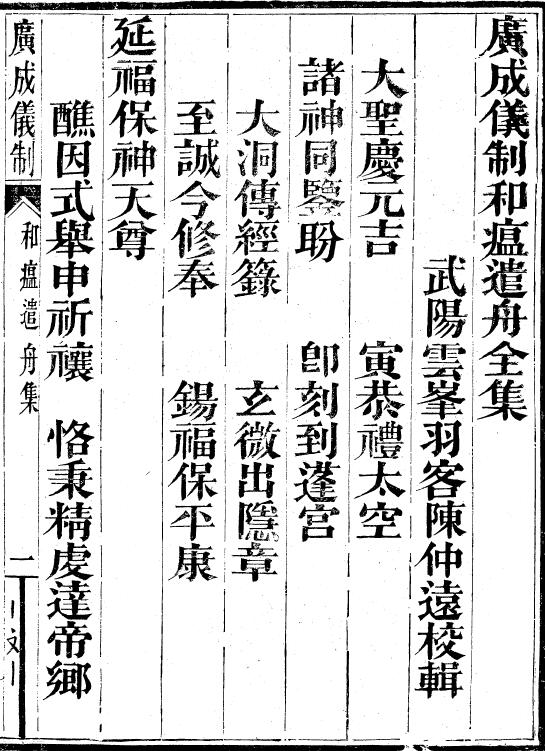 廣成儀制和瘟遣舟全集
武陽雲峯羽客陳仲遠校輯
大聖慶元吉　寅恭禮太空
諸神同鑒盼　卽刻到蓬宮
大洞傳經錄　玄微出隱章
至誠今修奉　錫福保平康
延福保神天尊
醮因式舉申祈禳　恪秉精虔達帝鄉
廣成儀制
和瘟遣舟集
一